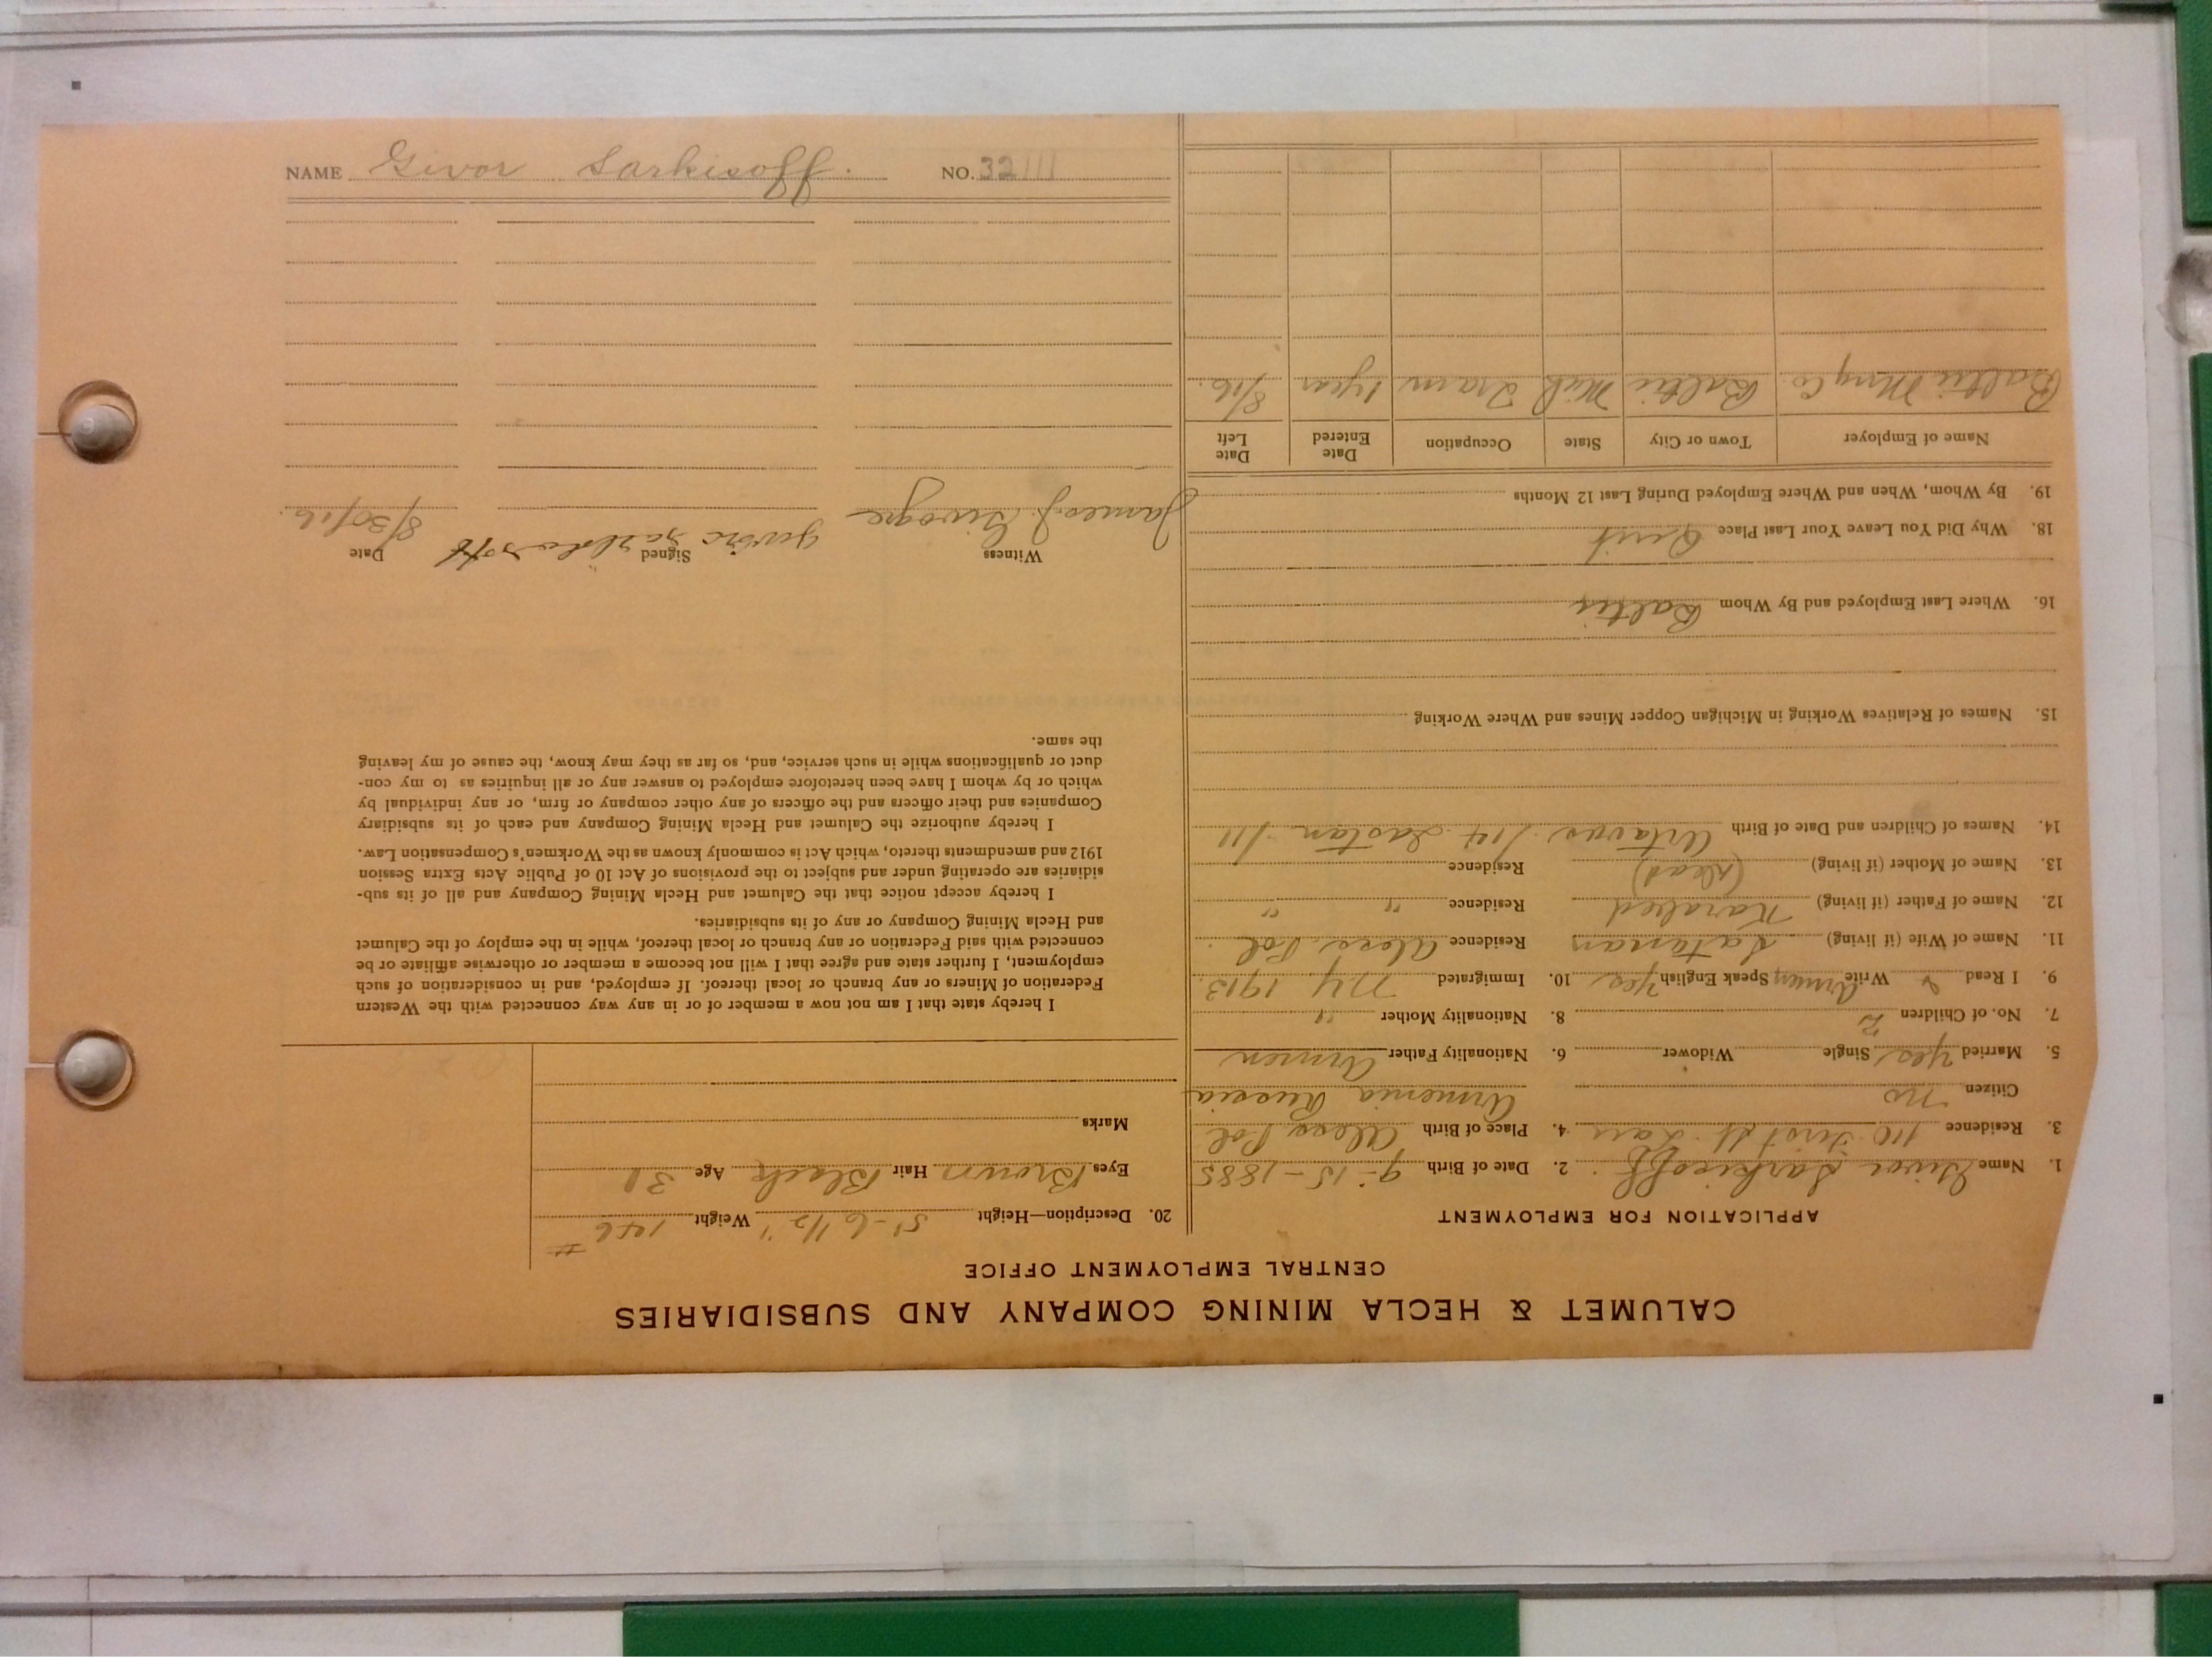 CALUMET & HECLA MINING COMPANY AND SUBSIDIARIES
CENTRAL EMPLOYMENT OFFICE
APPLICATION FOR EMPLOYMENT
1. Name Givor Sarkisoff. 2. Date of Birth 9-15-1885
3. Residence 110 First St. Laur 4. Place of Birth Alexs Pol
Citizen no Armenia Russia
5. Married yes Single Widower 6. Nationality Father Armen
7. No. of Children 2 8. Nationality Mother "
9. I Read & Write Armen Speak English yes 10. Immigrated NY 1913.
11. Name of Wife (if living) Satanan Residence Alexs. Pol.
12. Name of Father (if living) Karabed Residence " "
13. Name of Mother (if living) (dead) Residence
14. Names of Children and Date of Birth
15. Names of Relatives Working in Michigan Copper Mines and Where Working
16. Where Last Employed and By Whom Baltic
18. Why Did You Leave Your Last Place Quit
19. By Whom, When and Where Employed During Last 12 Months
Name of Employer Town or City State Occupation Date Entered Date Left
Baltic Mng Co. Baltic Mich Tram 1 year 8/16.
20. Description—Height 5'-6 1/2" Weight 146 #
Eyes Brown Hair Black Age 31
Marks
I hereby state that I am not now a member of or in any way connected with the Western
Federation of Miners or any branch or local thereof. If employed, and in consideration of such
employment, I further state and agree that I will not become a member or otherwise affiliate or be
connected with said Federation or any branch or local thereof, while in the employ of the Calumet
and Hecla Mining Company or any of its subsidiaries.
I hereby accept notice that the Calumet and Hecla Mining Company and all of its sub-
sidiaries are operating under and subject to the provisions of Act 10 of Public Acts Extra Session
1912 and amendments thereto, which Act is commonly known as the Workmen's Compensation Law.
I hereby authorize the Calumet and Hecla Mining Company and each of its subsidiary
Companies and their officers and the officers of any other company or firm, or any individual by
which or by whom I have been heretofore employed to answer any or all inquiries as to my con-
duct or qualifications while in such service, and, so far as they may know, the cause of my leaving
the same.
Witness Signed Date
James J. 8/30/16.
NAME Givor Sarkisoff. NO. 32111